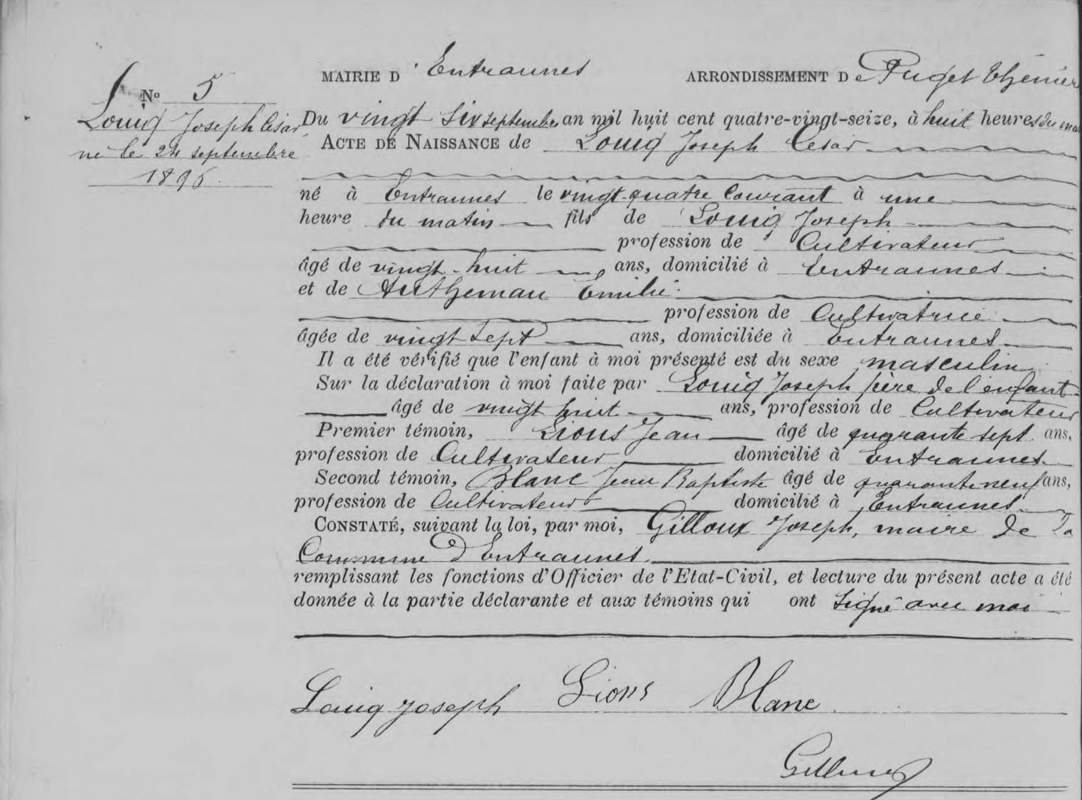 MAIRIE D'Entraunes ARRONDISSEMENT De Puget Théniers
N° 5
Louiq Joseph César
né le 24 septembre
1896.
Du vingt six septembre an mil huit cent quatre-vingt-seize, à huit heures du matin
ACTE DE NAISSANCE de Louiq Joseph César
né à Entraunes le vingt-quatre courant à une
heure du matin fils de Louiq Joseph
profession de Cultivateur
âgé de vingt-huit ans, domicilié à Entraunes
et deAutheman Emilie
profession de Cultivatrice
âgée de vingt sept ans, domiciliée à Entraunes
Il a été vérifié que l'enfant à moi présenté est du sexe masculin
Sur la déclaration à moi faite par Louiq Joseph père de l'enfant
âgé de vingt huit ans, profession de Cultivateur
Premier témoin, Lions Jean âgé de quarante sept ans,
profession de Cultivateur domicilié à Entraunes
Second témoin, Blanc Jean Baptiste âgé de quarante neuf ans,
profession de Cultivateur domicilié à Entraunes
CONSTATÉ, suivant la loi, par moi, Gilloux Joseph, maire de la
Commune d'Entraunes
remplissant les fonctions d'Officier de l'Etat-Civil, et lecture du présent acte a été
donnée à la partie déclarante et aux témoins qui ont signé avec moi
Louiq Joseph Lions Blanc
Gilloux